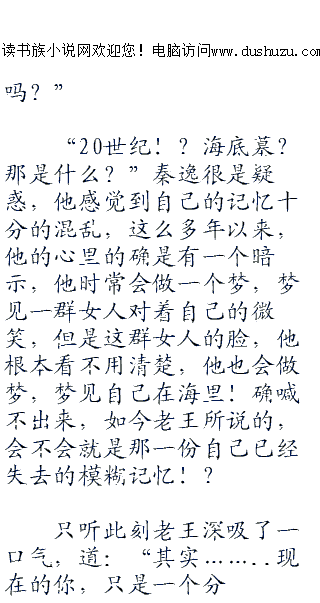 读书族小说网欢迎您！电脑访问www.dushuzu.com
吗？”
“20世纪！？海底墓？
那是什么？”秦逸很是疑
惑，他感觉到自己的记忆十
分的混乱，这么多年以来，
他的心里的确是有一个暗
示，他时常会做一个梦，梦
见一群女人对着自己的微
笑，但是这群女人的脸，他
根本看不用清楚，他也会做
梦，梦见自己在海里！确喊
不出来，如今老王所说的，
会不会就是那一份自己已经
失去的模糊记忆！？
只听此刻老王深吸了一
口气，道：“其实……..现
在的你，只是一个分